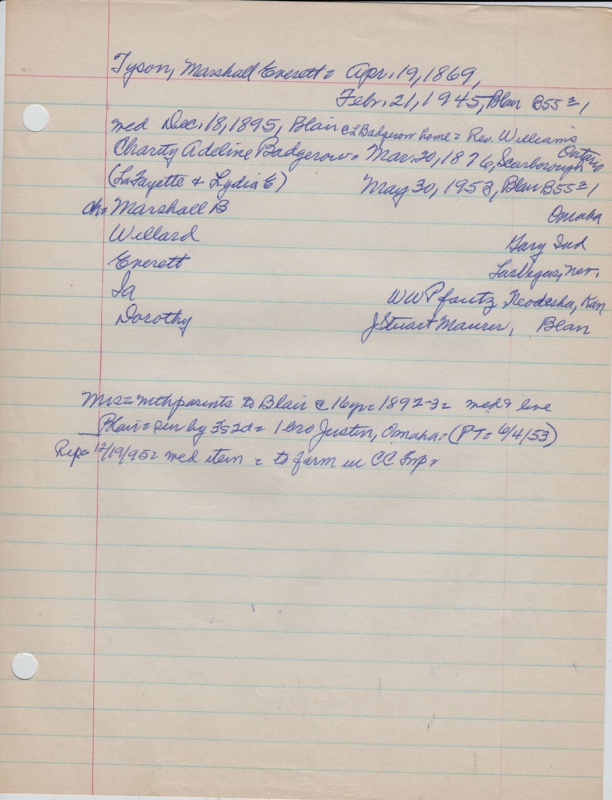 Tyson, Marshall Everett = Apr. 19, 1869,
Febr. 21, 1945, Blair B55=1
med Dec. 18, 1895, Blair c L Badgerow home = Rev. Williams
Charity Adeline Badgerow = Mar. 20, 1876, Scarborough Ontario
(LaFayette & Lydia E) May 30, 1953, Blair B55=1
ch= Marshall B Omaha
Willard Gary Ind
Everett Las Vegas, Nev.
Ia W W Pfautz Neodesha, Kan
Dorothy J Stuart Maurer, Blair
Mrs = with parents to Blair @ 16yr = 1892-3 = med & live
Blair = sur by 3s 2d = 1 bro Justin, Omaha = (PT = 6/4/53)
Rep = 12/19/95 = med item = to farm in CC Twp =